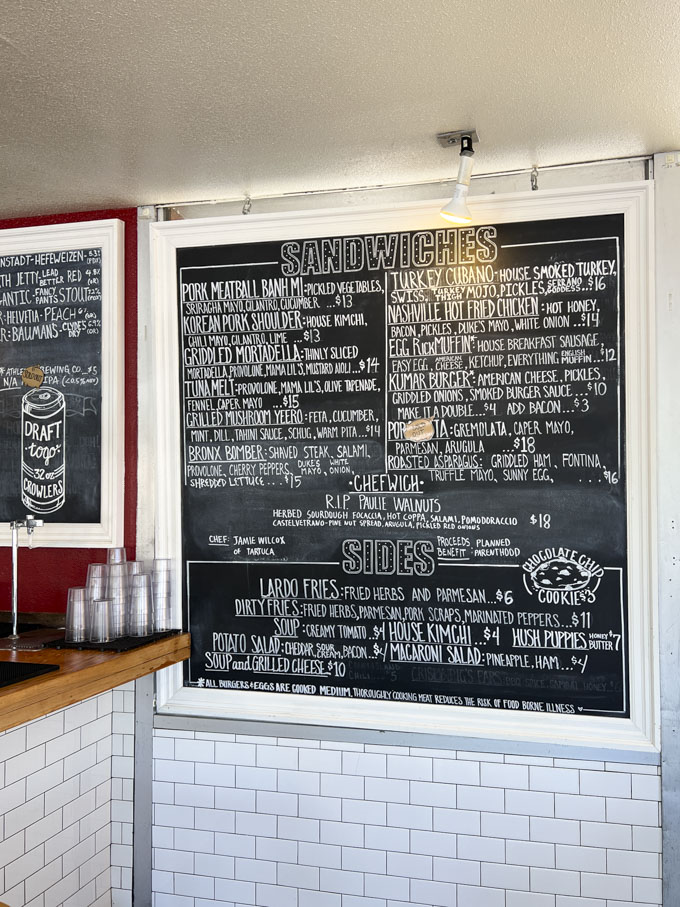 NSTADT-HEFEWEIZEN. 5.3%
TH JETTY-LEAD BETTER RED 4.8%
ANTIC-FANCY PANTS STOUT
R:HELVETIA-PEACH
R:BAUMANS-CLYDE'S DRY
BREWING CO. $5
N/A IPA (<0.5% ABV)
DRAFT
togo
32oz
CROWLERS
SANDWICHES
PORK MEATBALL BANH MI:PICKLED VEGETABLES,
SRIRACHA MAYO, CILANTRO, CUCUMBER ...$13
KOREAN PORK SHOULDER:HOUSE KIMCHI,
CHILI MAYO, CILANTRO, LIME ...$13
GRIDDLED MORTADELLA:THINLY SLICED
MORTADELLA, PROVOLONE, MAMA LIL'S, MUSTARD AIOLI...$14
TUNA MELT:PROVOLONE, MAMA LIL'S, OLIVE TAPENADE,
FENNEL, CAPER MAYO ...$15
GRILLED MUSHROOM YEERO:FETA, CUCUMBER,
MINT, DILL, TAHINI SAUCE, SCHUG, WARM PITA...$14
BRONX BOMBER: SHAVED STEAK, SALAMI,
PROVOLONE, CHERRY PEPPERS, DUKE'S MAYO, WHITE ONION,
SHREDDED LETTUCE....$15
TURKEY CUBANO:HOUSE SMOKED TURKEY,
SWISS, TURKEY THIGH MOJO, PICKLES, SERRANO GODDESS....$16
NASHVILLE HOT FRIED CHICKEN: HOT HONEY,
BACON, PICKLES, DUKE'S MAYO, WHITE ONION ...$14
EGG RICKMUFFIN*: HOUSE BREAKFAST SAUSAGE,
EASY EGG, AMERICAN CHEESE, KETCHUP, EVERYTHING ENGLISH MUFFIN...$12
KUMAR BURGER*: AMERICAN CHEESE, PICKLES,
GRIDDLED ONIONS, SMOKED BURGER SAUCE...$10
MAKE IT A DOUBLE...$4 ADD BACON...$3
TA: GREMOLATA, CAPER MAYO,
PARMESAN, ARUGULA ...$18
ROASTED ASPARAGUS: GRIDDLED HAM, FONTINA,
TRUFFLE MAYO, SUNNY EGG, ... $16
·CHEFWICH·
R.I.P. PAULIE WALNUTS
HERBED SOURDOUGH FOCACCIA, HOT COPPA, SALAMI, POMODORACCIO $18
CASTELVETRANO-PINE NUT SPREAD, ARUGULA, PICKLED RED ONIONS
CHEF: JAMIE WILCOX
of TARTUCA
PROCEEDS PLANNED
BENEFIT: PARENTHOOD
SIDES
CHOCOLATE CHIP
COOKIE $3
LARDO FRIES:FRIED HERBS AND PARMESAN...$6
DIRTY FRIES:FRIED HERBS, PARMESAN, PORK SCRAPS, MARINATED PEPPERS...$11
SOUP:CREAMY TOMATO .$4 HOUSE KIMCHI..$4 HUSH PUPPIES HONEY BUTTER $7
POTATO SALAD:CHEDDAR, SOUR CREAM, BACON. $4 MACARONI SALAD:PINEAPPLE, HAM ..$4
SOUP and GRILLED CHEESE $10
*ALL BURGERS & EGGS ARE COOKED MEDIUM, THOROUGHLY COOKING MEAT REDUCES THE RISK OF FOOD BORNE ILLNESS